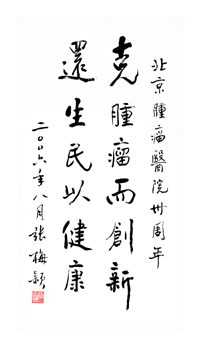 北京腫瘤醫院卅周年
克腫瘤而創新
還生民以健康
二〇〇六年八月張梅穎